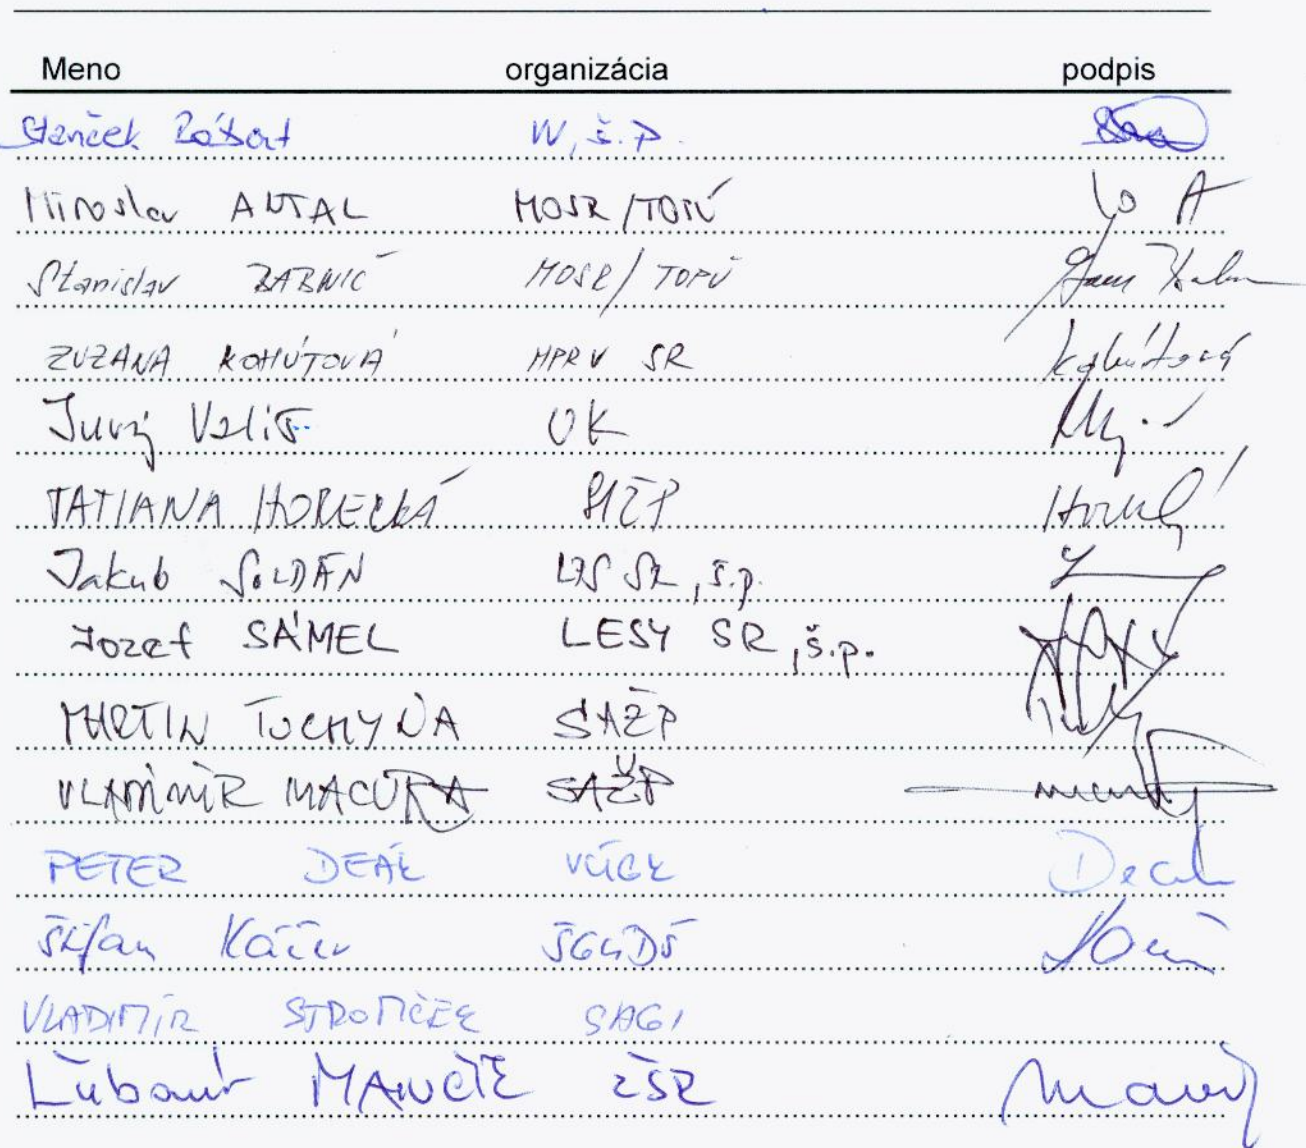 Meno organizácia podpis
Stanček Róbert VV, š.p.
Miroslav ANTAL MOSR/TOPÚ
Stanislav BABNIČ MOSR/TOPÚ
ZUZANA KOHÚTOVÁ MPRV SR Kohútová
Juraj Vališ UK
TATIANA HORECKÁ SIŽP
Jakub SOLDÁN LPS SR, š.p.
Jozef SÁMEL LESY SR, š.p.
MARTIN TUCHYŇA SAŽP
VLADIMÍR MACURA SAŽP
PETER DEÁK Deák
Štefan Káčer ŠGÚDŠ
VLADIMÍR STROMČEK SAGI
Ľubomír MANČÍK ŽSR